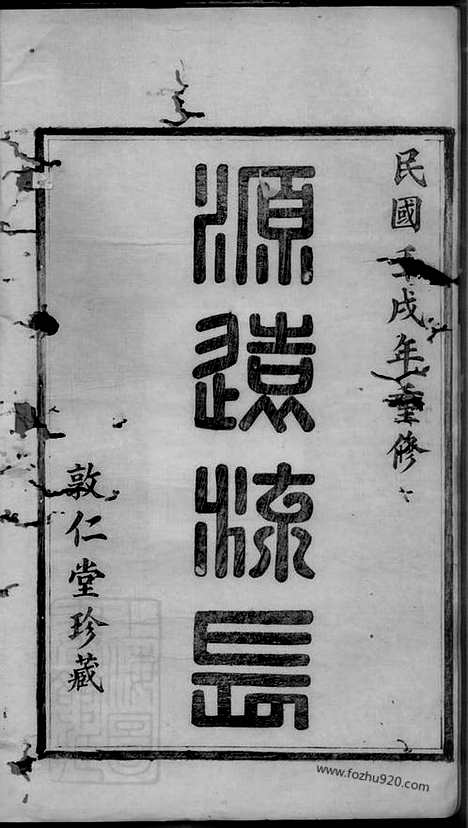 民國壬戌年重修
源遠流長
敦仁堂珍藏
www.fozhu920.com